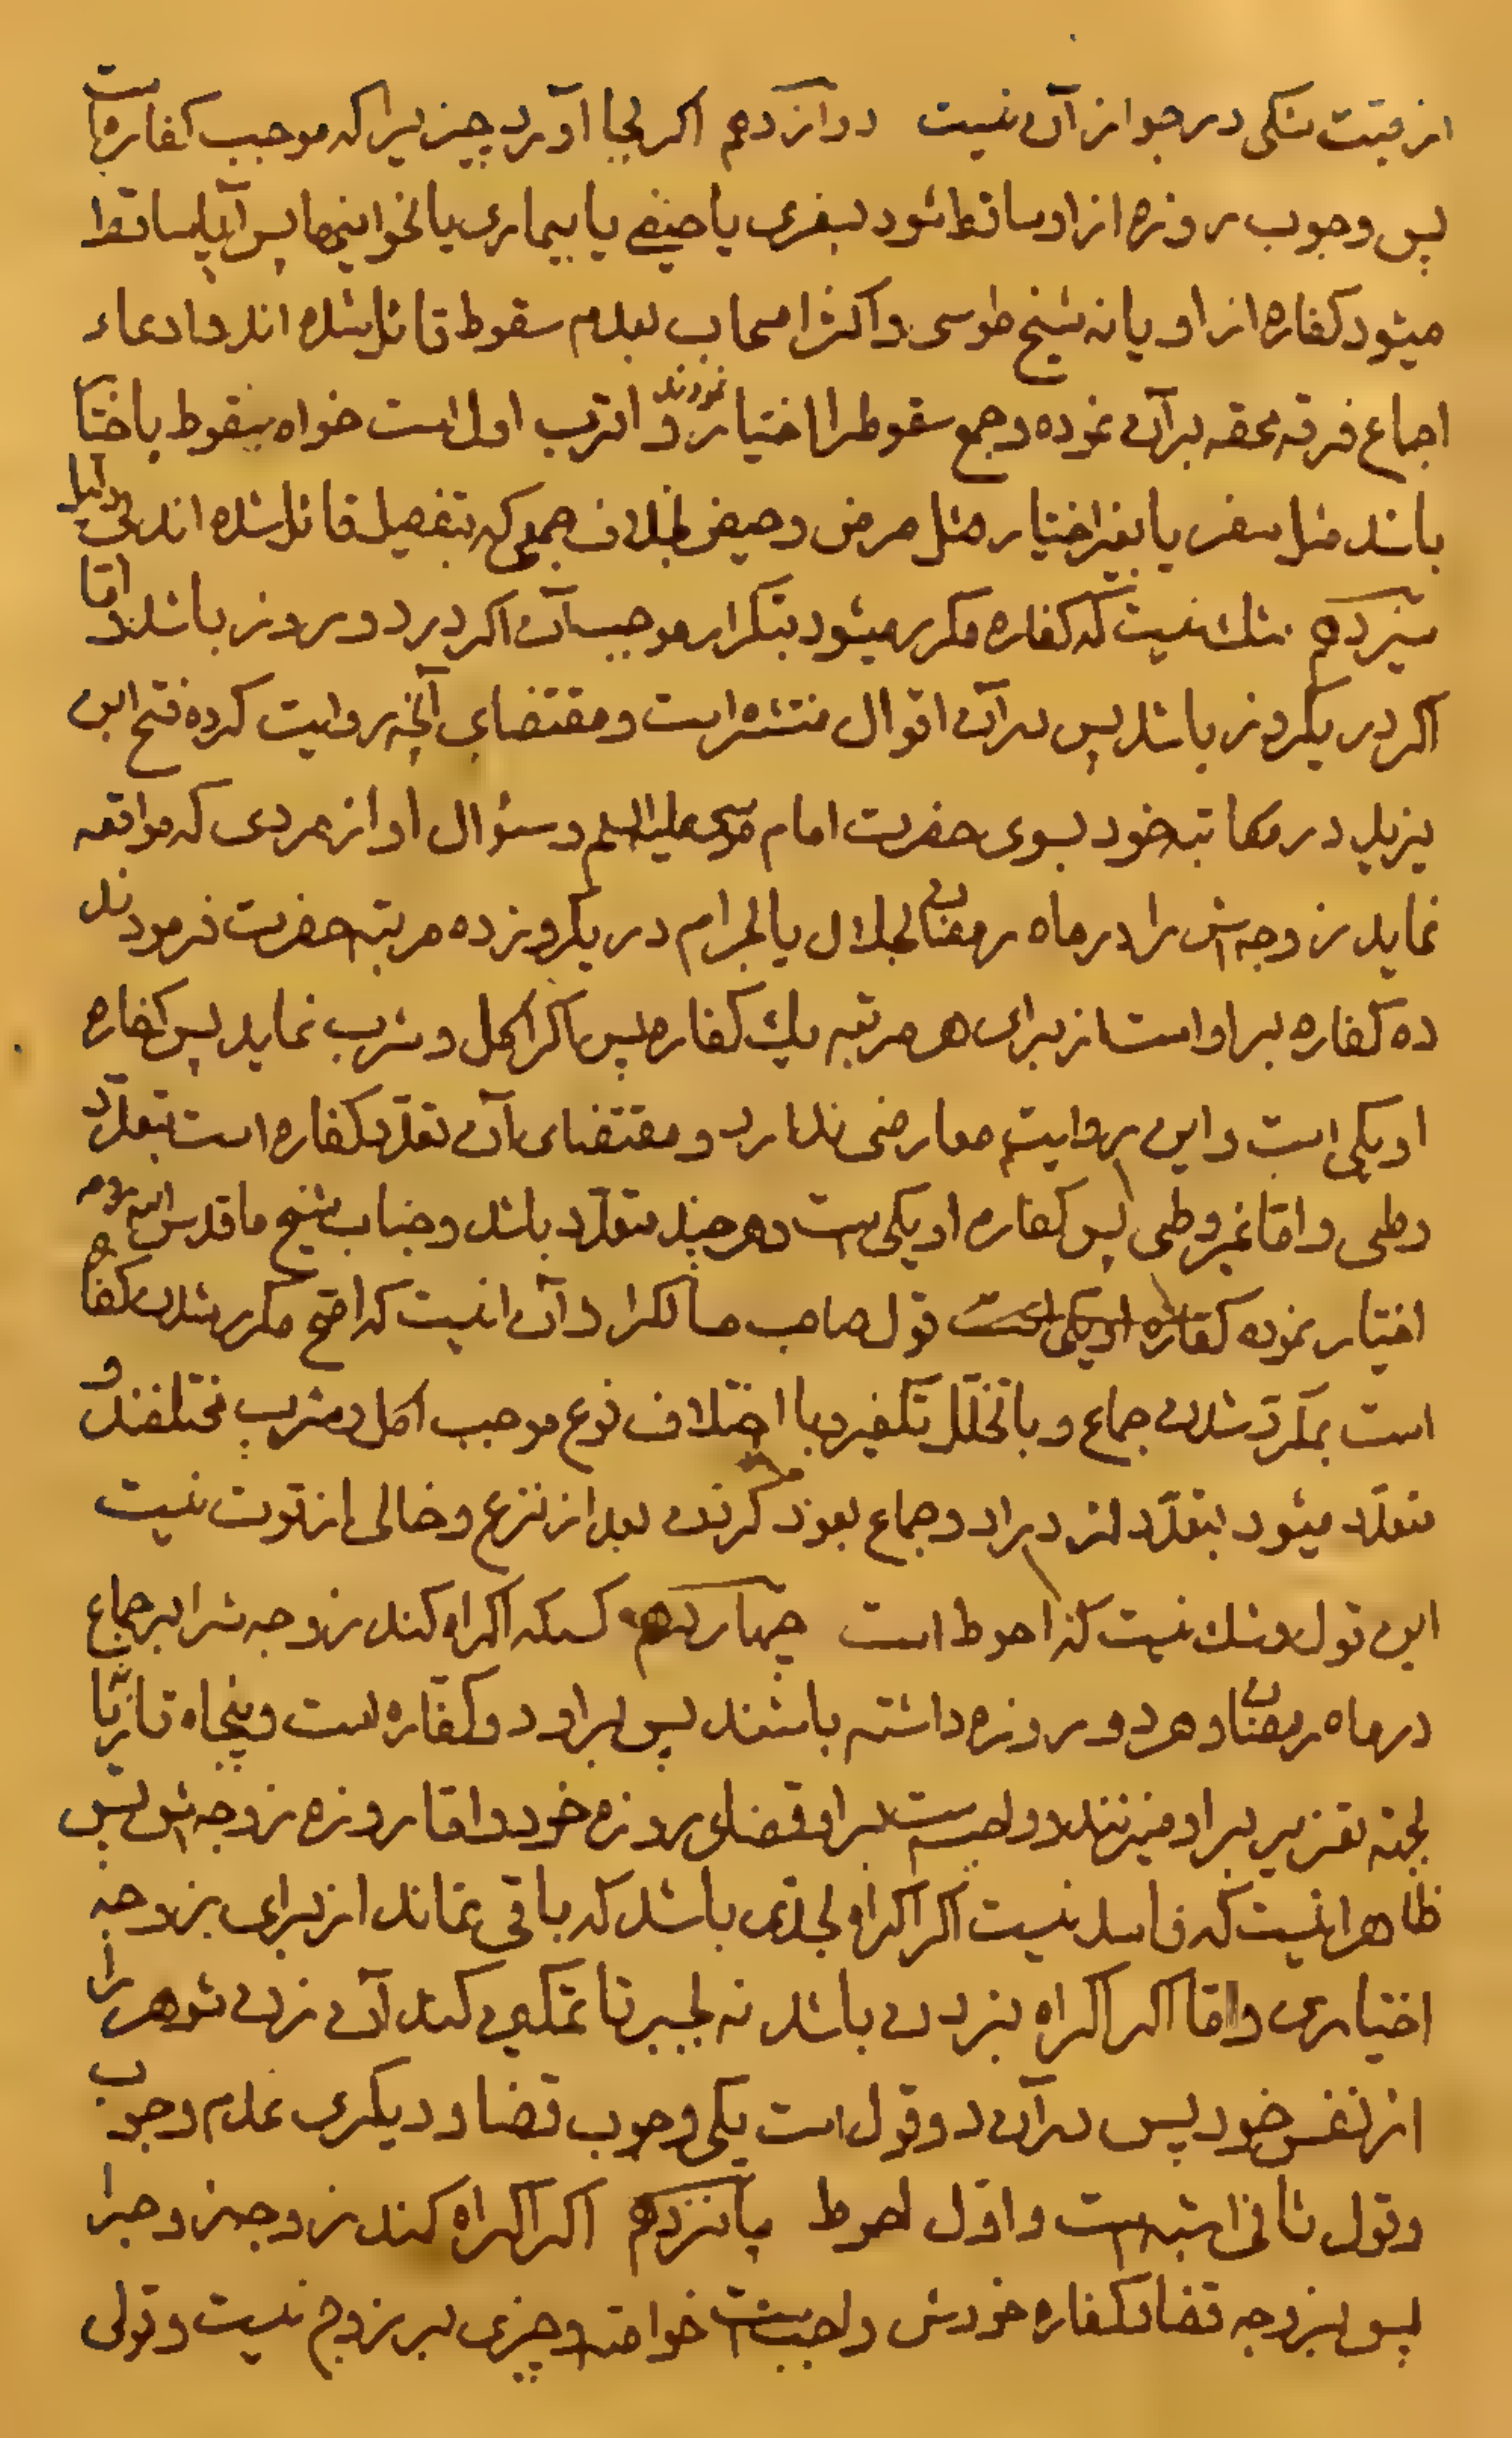 از قیمت شکی در جواز آن نیست دوازدهم اکر بجا آورد چیزیرا که موجب کفاره است
پس وجوب روزه از او ساقط شود بسفری یا حیضی یا بیماری یا نحو اینها پس آیا ساقط
میشود کفاره از او یا نه شیخ طوسی و اکثر اصحاب بعدم سقوط قائل شده اند و ادعاء
اجماع فرقه محقه بر آن نموده و جمع سقوط را اختیار نمودند و اقرب اول است خواه سقوط باختیار
باشد مثل سفر یا بغیر اختیار مثل مرض و حیض بخلاف جمعی که بتفصیل قائل شده اند بی دلیل
سیزدهم شک نیست که کفاره مکرر میشود بتکرار موجب آن اکر در دو روز باشد و اما
اکر در یکروز باشد پس در آن اقوال منتشره است و مقتضای آنچه روایت کرده فتح ابن
یزید در مکاتبه خود بسوی حضرت امام موسی علیه السلم و سئوال او از مردی که مواقعه
نماید زوجه اش را در ماه رمضان بحلال یا بحرام در یکروز ده مرتبه حضرت فرمودند
ده کفاره بر او است از برای هر مرتبه یک کفاره پس اکر اکل و شرب نماید پس کفاره
او یکی است و این روایت معارضی ندارد و مقتضای آن تعدد کفاره است بتعدد
وطی و اما غیر وطی پس کفاره او یکی است و هر چند متعدد باشد و جناب شیخ ما قدس الله روحه
اختیار نموده کفاره او یکی است قول صاحب مسالک را و آن اینست که اصح مکرر شدن کفاره
است بمکرر شدن جماع و با تخلل تکفیر و با اختلاف نوع موجب اکل و شرب مختلفند و
متعدد میشود بتعدد ازدراد و جماع بعود کردن بعد از نزع و خالی از قوت نیست
این قول و شک نیست که احوط است چهاردهم کسیکه اکراه کند زوجه اش را بر جماع
در ماه رمضان و هر دو روزه داشته باشند پس بر او دو کفاره است و پنجاه تازیانه
بجهة تعزیر بر او میزنند و واجب است بر او قضای روزه خود و اما روزه زوجه اش پس
ظاهر اینست که فاسد نیست اکر اکراه بحدی باشد که باقی نماند از برای زوجه
اختیاری و اما اکر اکراه بزدن باشد نه بجبر تا تمکین کند آن زن شوهر را
از نفس خود پس در آن دو قول است یکی وجوب قضا و دیکری عدم وجوب
و قول ثانی اشبه است و اول احوط پانزدهم اکر اکراه کند زوجه زوج را
پس بر زوجه قضا و کفاره خودش واجب است خواهد و چیزی بر زوج نیست و قولی